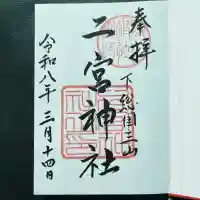 奉拝
下総国三山
二宮神社
令和八年三月十四日